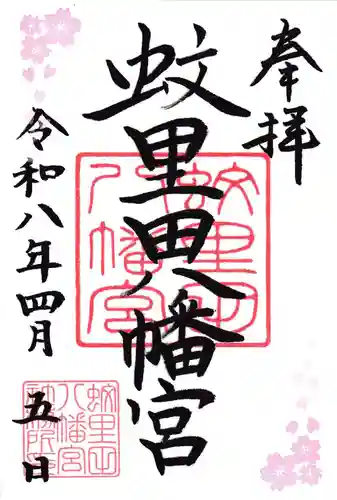 奉拝
蚊里田八幡宮
令和八年四月五日
蚊里田
八幡宮
蚊里田
八幡宮